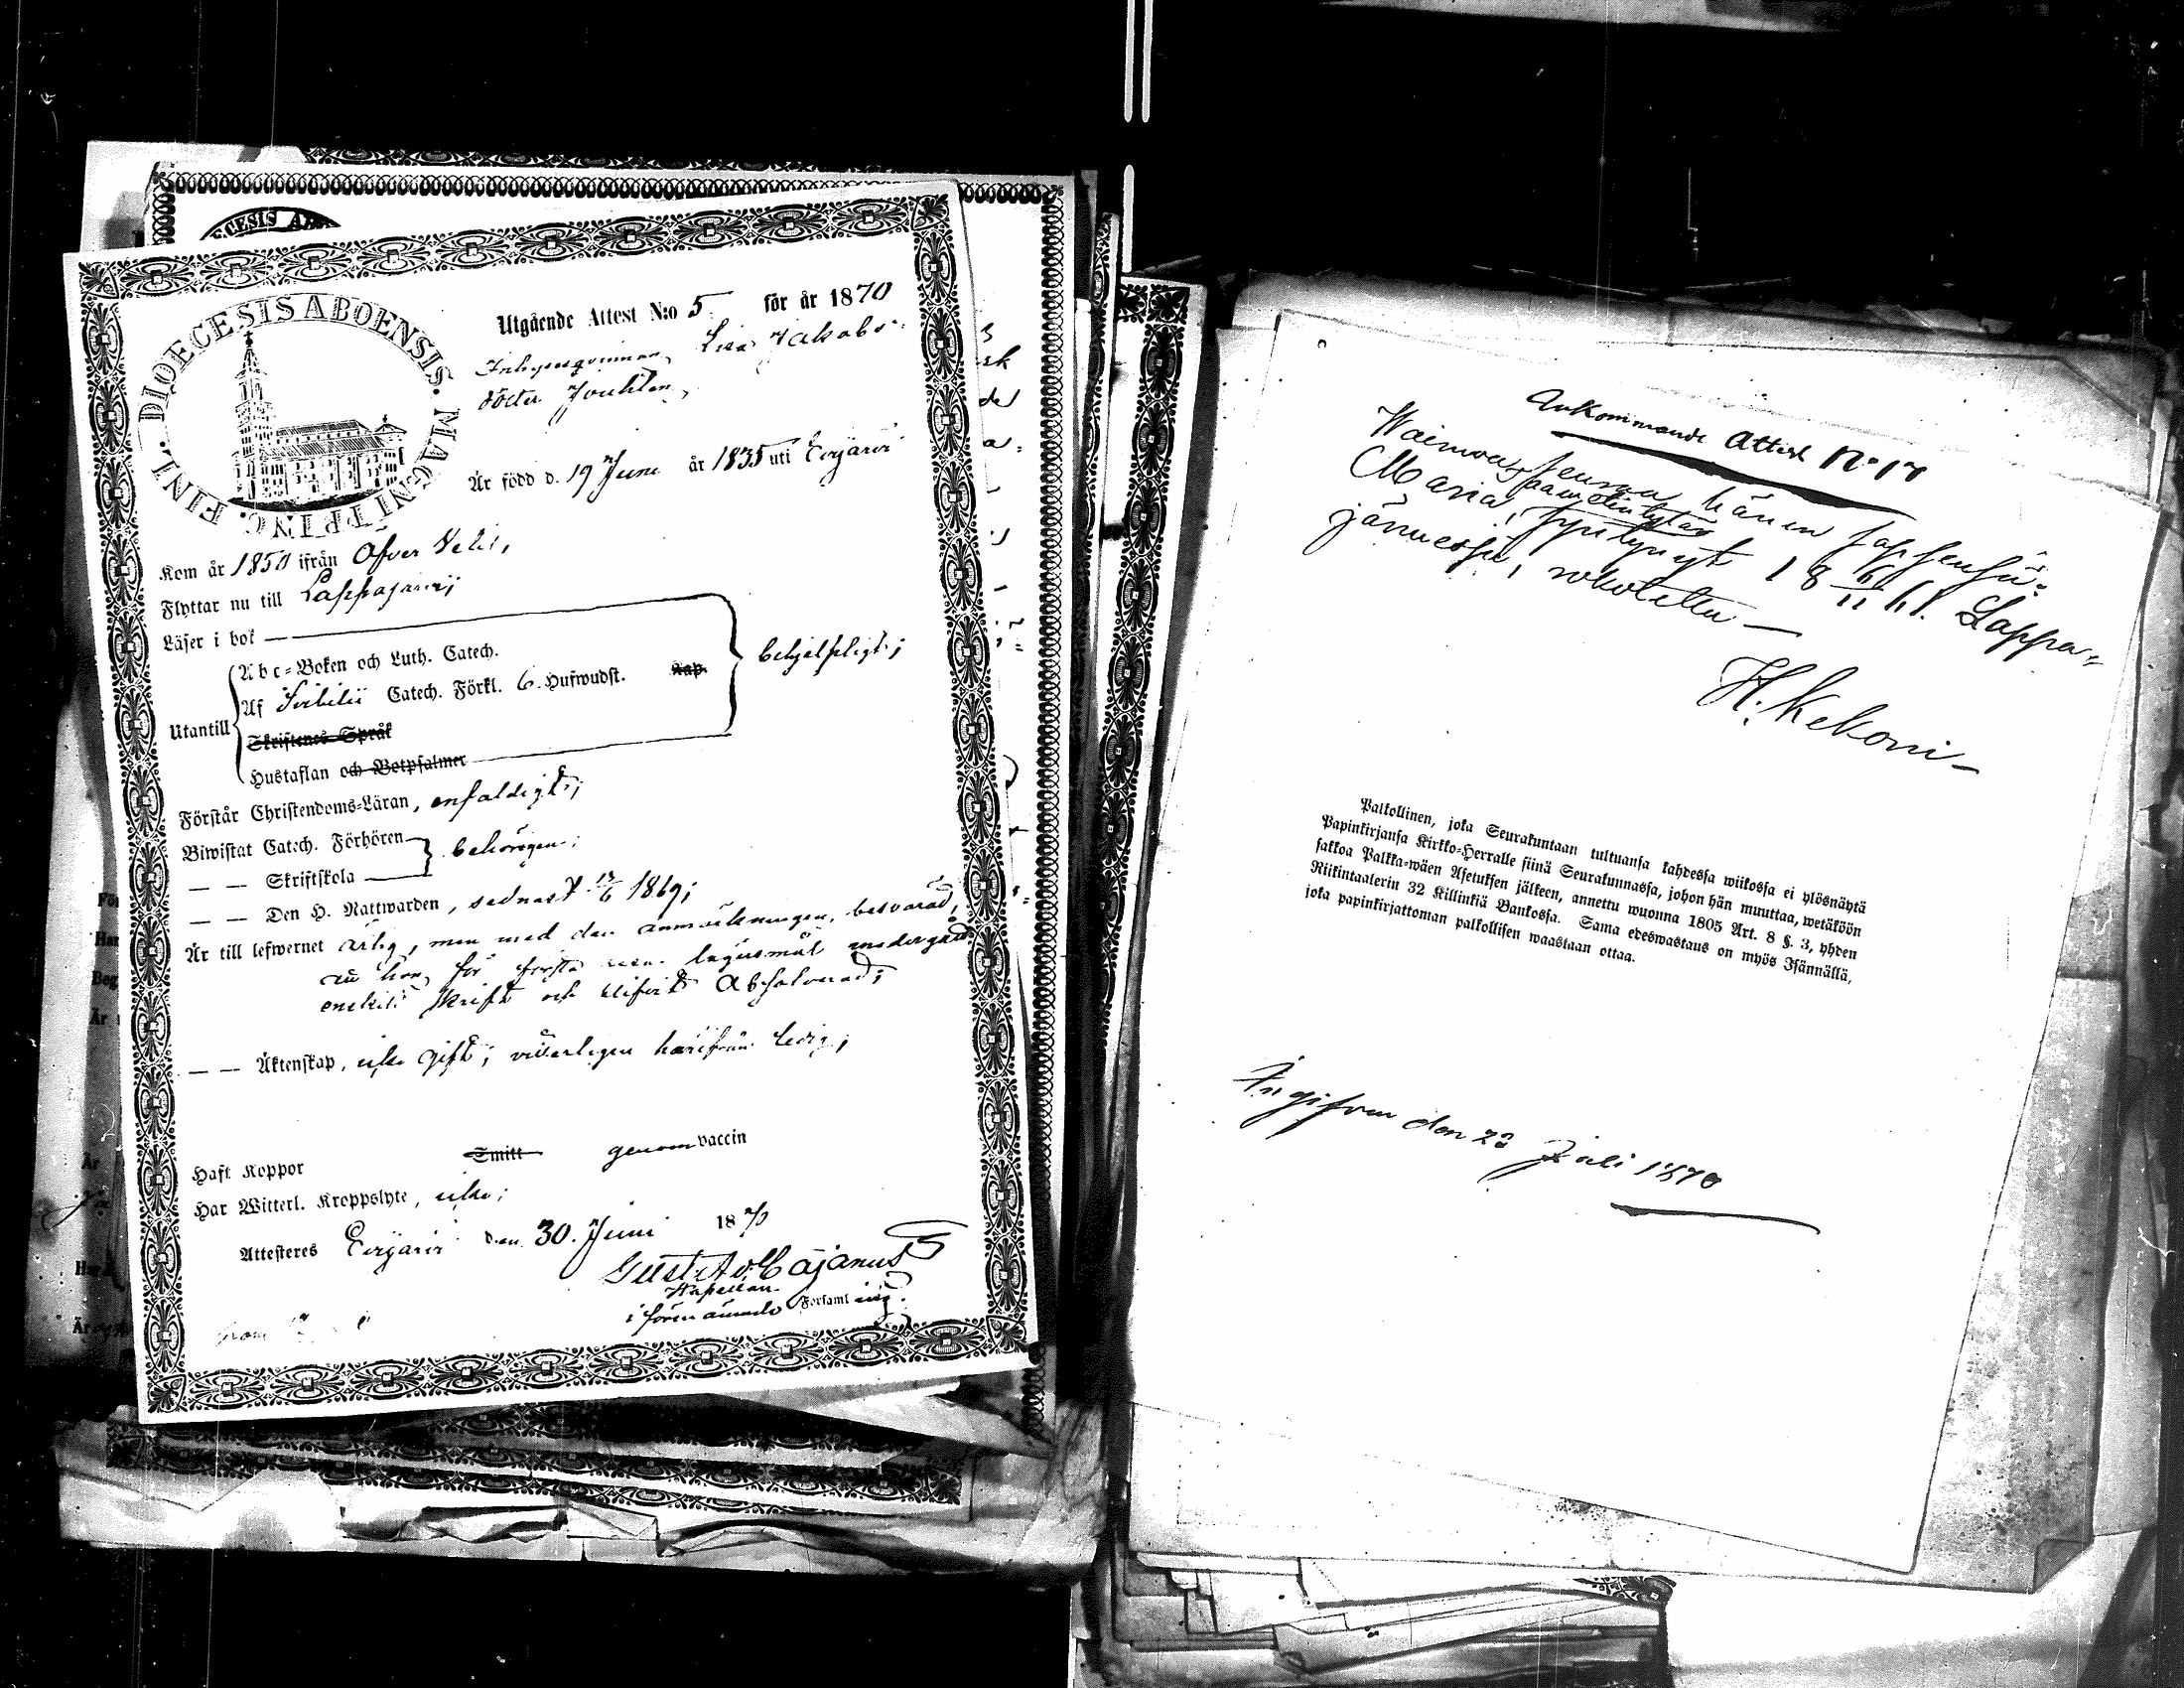 DIOECESIS ABOENSIS. MAGNI PRINC. FINL.
Utgående Attest N:o 5 för år 1870
Inhysesqvinnan, Lisa Jakobs-
dotter Jouhten,
Är född d. 19 Juni år 1835 uti Evijärvi
Kom år 1850 ifrån Öfver Vetil,
Flyttar nu till Lappajärvi;
Läser i bok
Abc-Boken och Luth. Catech.
Utantill
Af Svebilii Catech. Förkl. 6. Hufwudst. Kap.
Skriftenes Språk
Hustaflan och Botpsalmer
behjelpligt;
Förstår Christendoms-Läran, enfaldigt;
Biwistat Catech. Förhören
behörigen;
— — Skriftskola
— — Den H. Nattwarden, sednast 13/6 1869;
Är till lefwernet ärlig, men med den anmärkningen, besvärad,
för första lägersmål undergått
enskilt skrift och blifvit Absolverad;
— — Äktenskap, icke gift; härifrån ledig;
Haft Koppor Smitt genom vaccin
Har Witterl. Kroppslyte, icke;
Attesteres Evijärvi den 30. Juni 1870
Gust. Ad. Cajanus
Kapellan
i förenämnde Församling.
Ankommande Attest No 17
hänen
Maria, syntynyt 18 6/11 61. Lappa-
järvessä, rokotettu —
H. Kekoni
Palkollinen, joka Seurakuntaan tultuansa kahdessa wiikossa ei ylösnäytä
Papinkirjansa Kirkko-Herralle siinä Seurakunnassa, johon hän muuttaa, wetäköön
sakkoa Palkka-wäen Asetuksen jälkeen, annettu wuonna 1805 Art. 8 §. 3, yhden
Riikintaalerin 32 Killinkiä Bankossa. Sama edeswastaus on myös Isännällä,
joka papinkirjattoman palkollisen waastaan ottaa.
Ingifven den 23 Juli 1870